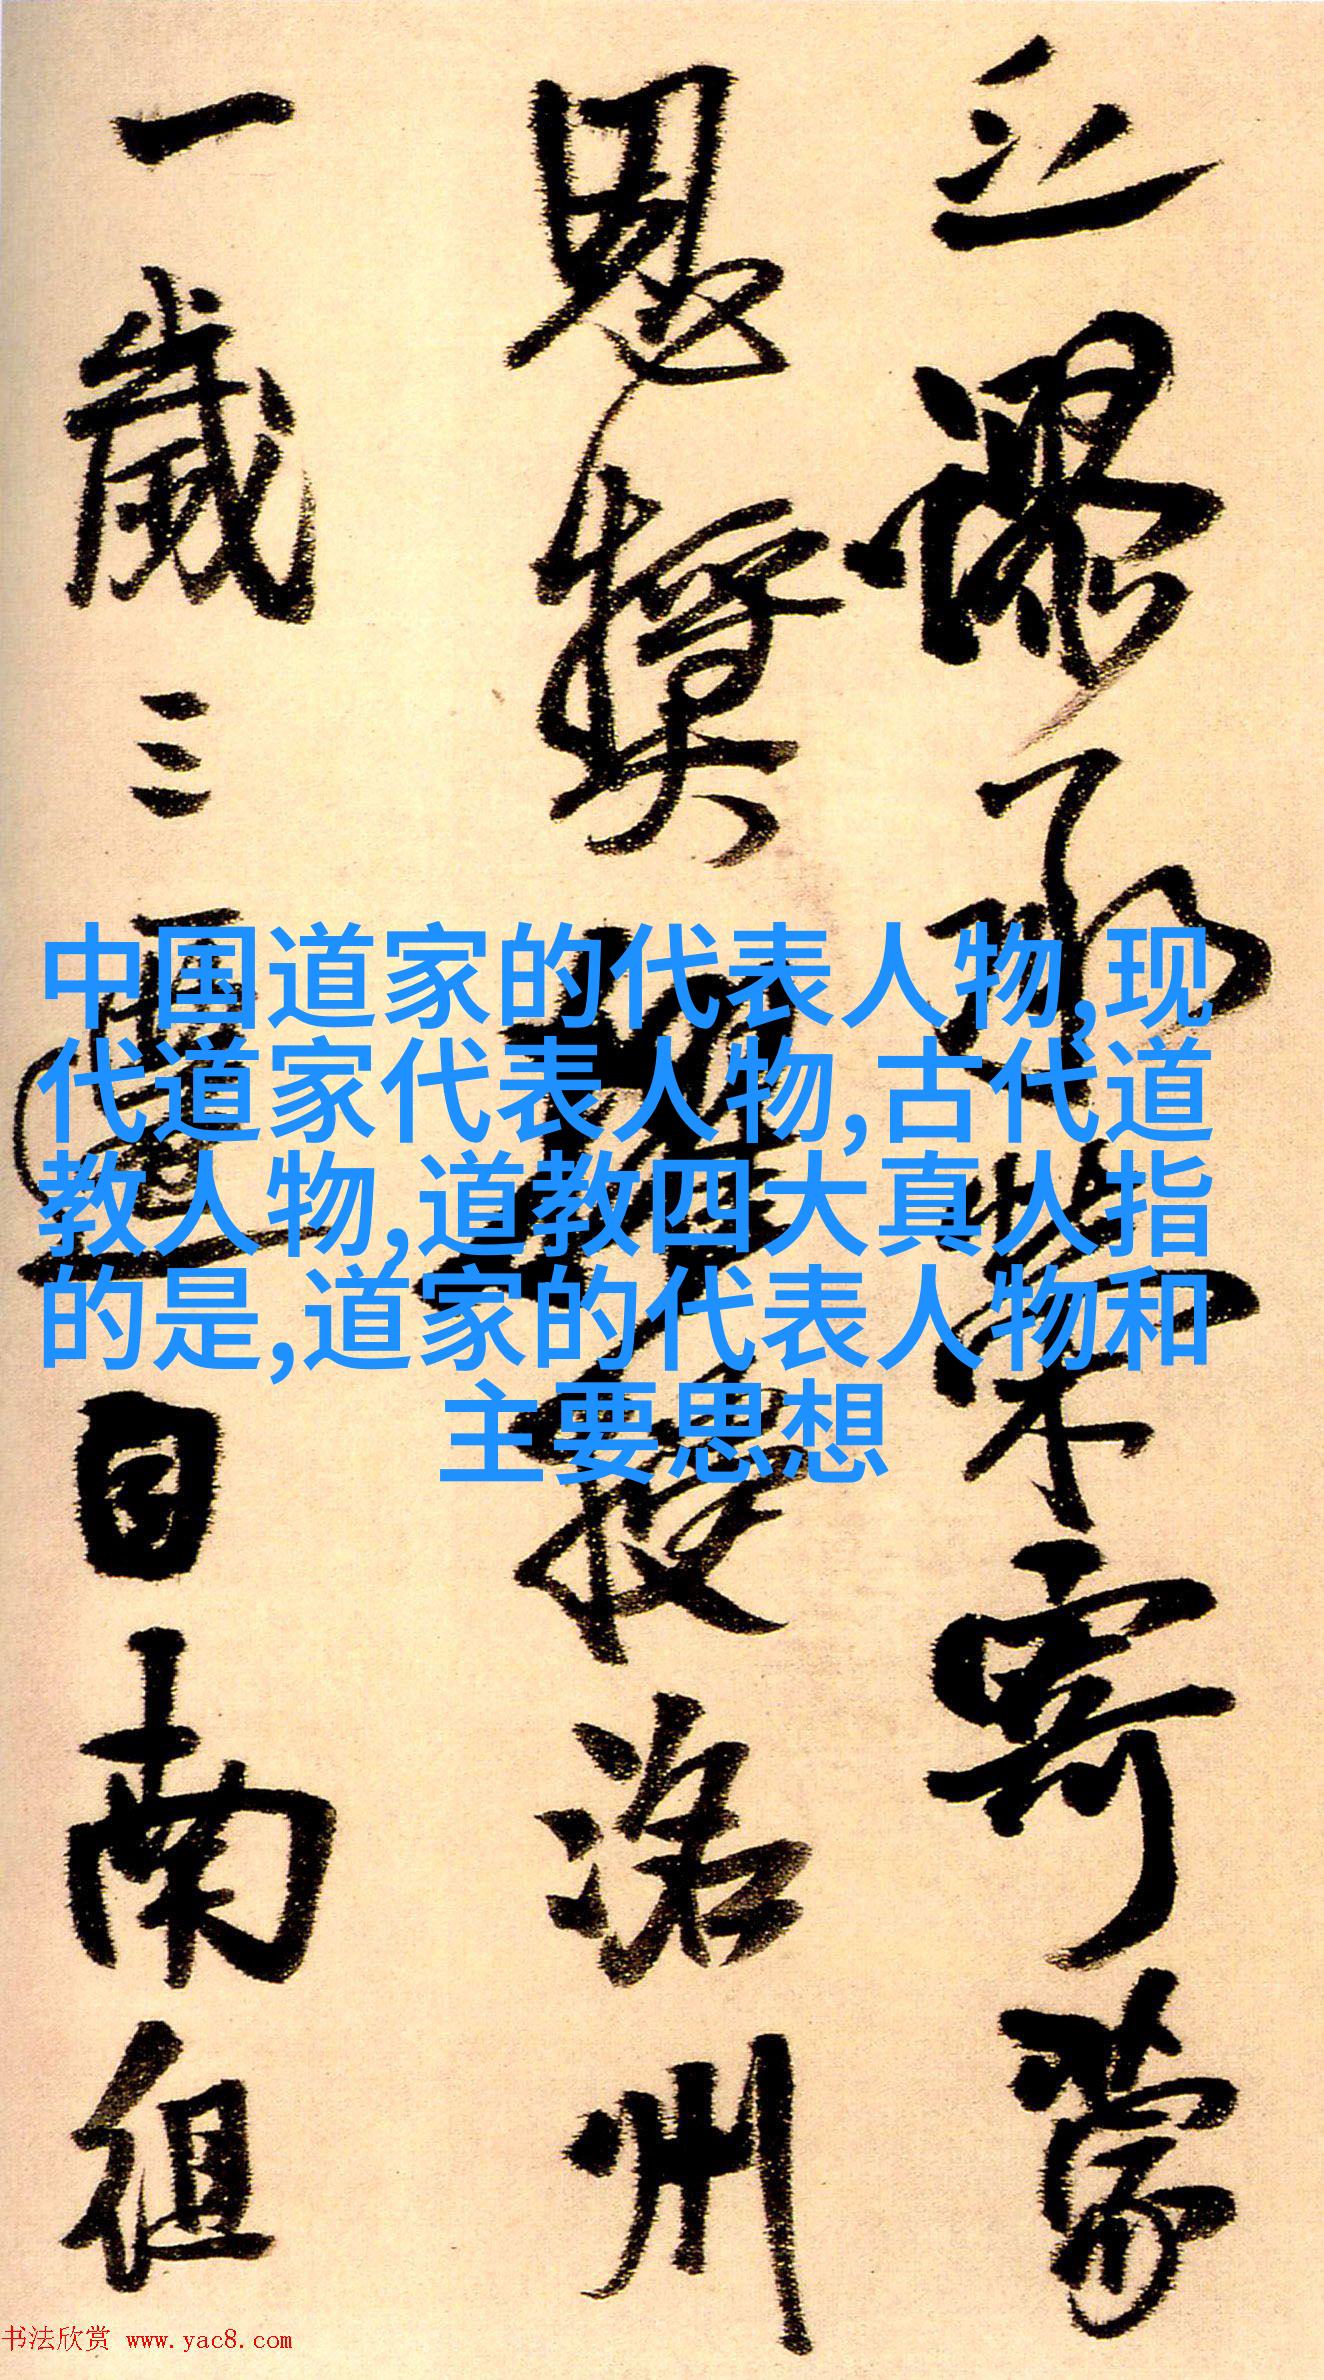 立謬承榮寄蒙
恩獎擢授洺州
一歲三遷自南徂
中国道家的代表人物,现
代道家代表人物,古代道
教人物,道教四大真人指
的是,道家的代表人物和
主要思想
书法欣赏 www.yac8.com